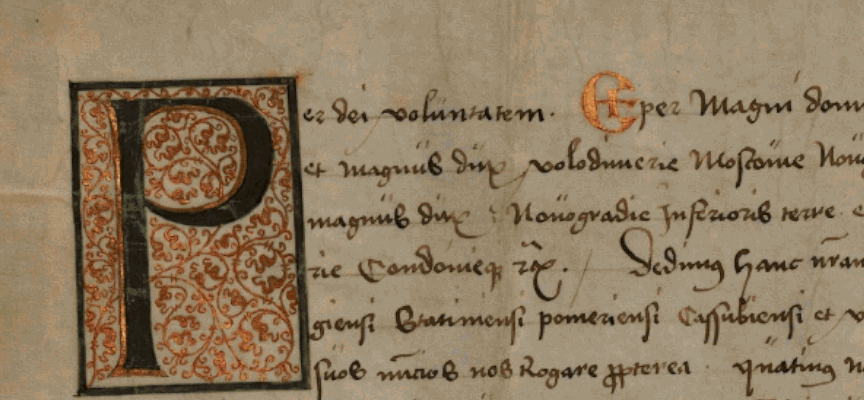 Per dei voluntatem. Et per Magni domi
et magnus dux volodimerie Moscovie Nou
magnus dux Nouogradie Inferioris terre e
rie Condonieque rcx. Dedimus hanc nram
giensi Statiniensi pomeriensi Cassubiensi et v
suos nuncios nos Rogare propterea quatinus n